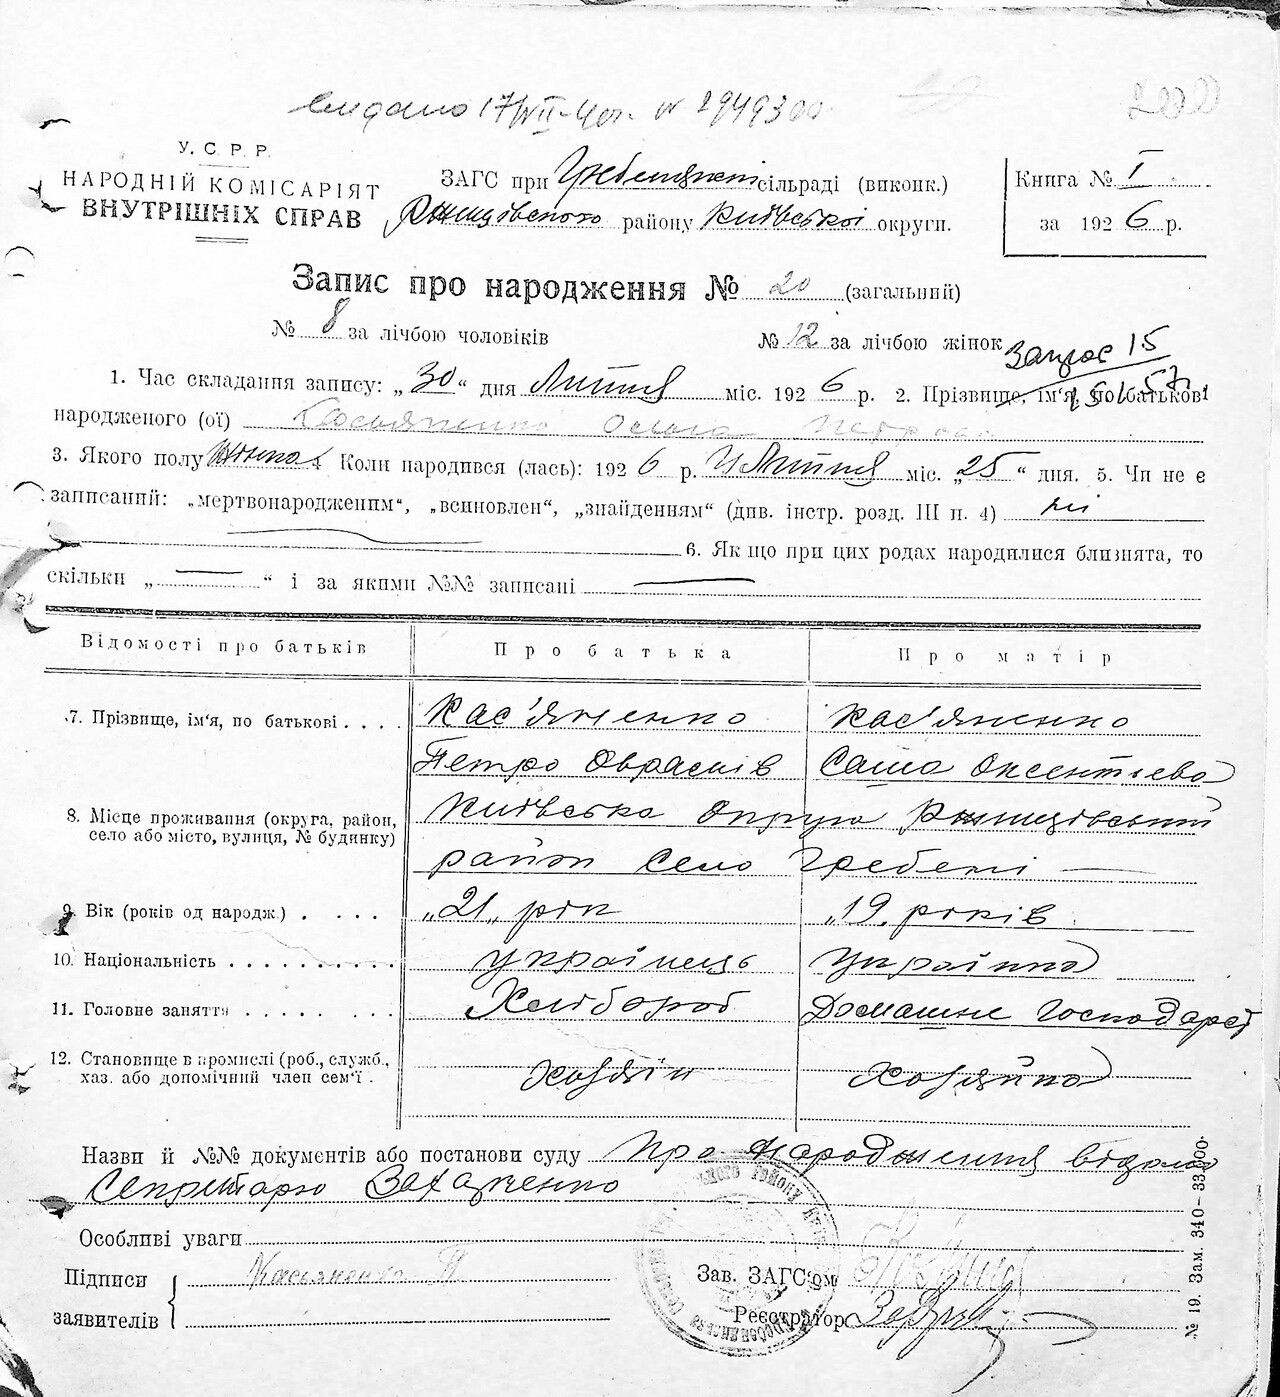 видано 17/VII-40г. № 2949300
У. С. Р. Р.
НАРОДНІЙ КОМІСАРІЯТ
ВНУТРІШНІХ СПРАВ
ЗАГС при сільраді (виконк.)
Ржищівського району Київської округи.
Книга № I
за 1926 р.
Запис про народження № 20 (загальний)
№ 8 за лічбою чоловіків № 12 за лічбою жінок
Запрос 15
1. Час складання запису: „30“ дня Липня міс. 1926 р. 2. Прізвище, ім'я, по батькові
народженого (ої) Касьяненко Ольга Петровна
3. Якого полу жіноч. 4 Коли народився (лась): 1926 р. Липня міс. „25“ дня. 5. Чи не є
записаний: „мертвонародженим“, „всиновлен“, „знайденням“ (див. інстр. розд. III п. 4) ні
6. Якщо при цих родах народилися близнята, то
скільки „ “ і за якими №№ записані
Відомості про батьків Про батька Про матір
7. Прізвище, ім'я, по батькові . . . . Кас'яненко Кас'яненко
Петро Саша Оксентієва
8. Місце проживання (округа, район, село або місто, вулиця, № будинку) Київська Округа Ржищівський
район Село Гребені
9. Вік (років од народж.) . . . . „21„ рік „19„ років
10. Національність . . . . . . . . . . українець Українка
11. Головне заняття . . . . . . . . Хлібороб Домашнє Господарст
12. Становище в промислі (роб., служб., хаз. або допомічний член сем'ї . хозяїн хозяйка
Назви й №№ документів або постанови суду Про народження відомо
Секретарю Захаченко
Особливі уваги
Підписи Касьяненко П
заявителів
Зав. ЗАГС'ом
Реєстратор
№ 19. Зам. 340—33000.